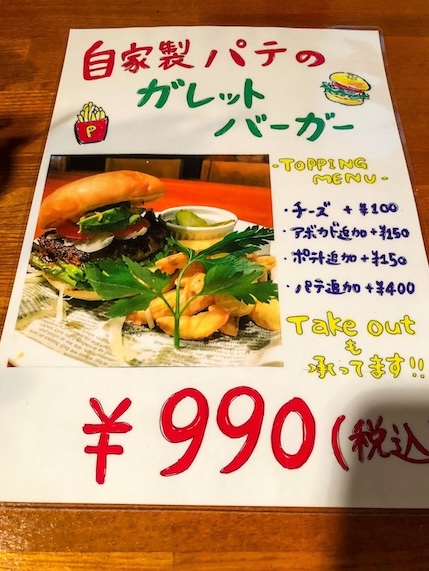 自家製パテの
ガレット
バーガー
P
-TOPPING
MENU-
・チーズ +¥100
・アボカド追加+¥150
・ポテト追加+¥150
・パテ追加+¥400
Take out
も
承ってます!!
¥990(税込